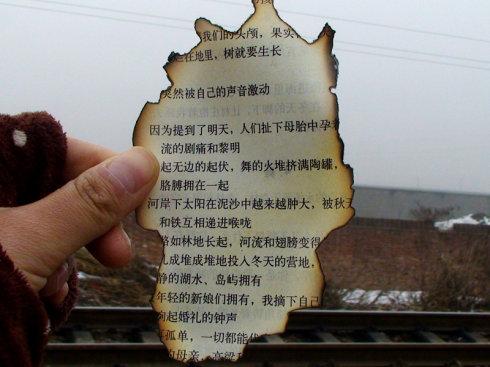 我们的头颅，果实
在地里，树就要生长
突然被自己的声音激动
因为提到了明天，人们扯下母胎中孕
流的剧痛和黎明
起无边的起伏，舞的火堆挤满陶罐，
胳膊拥在一起
河岸下太阳在泥沙中越来越肿大，被秋天
和铁互相递进喉咙
如林地长起，河流和翅膀变得
成堆成堆地投入冬天的营地。
静的湖水、岛屿拥有
年轻的新娘们拥有，我摘下自己
起婚礼的钟声
孤单，一切都能
的母亲，高粱